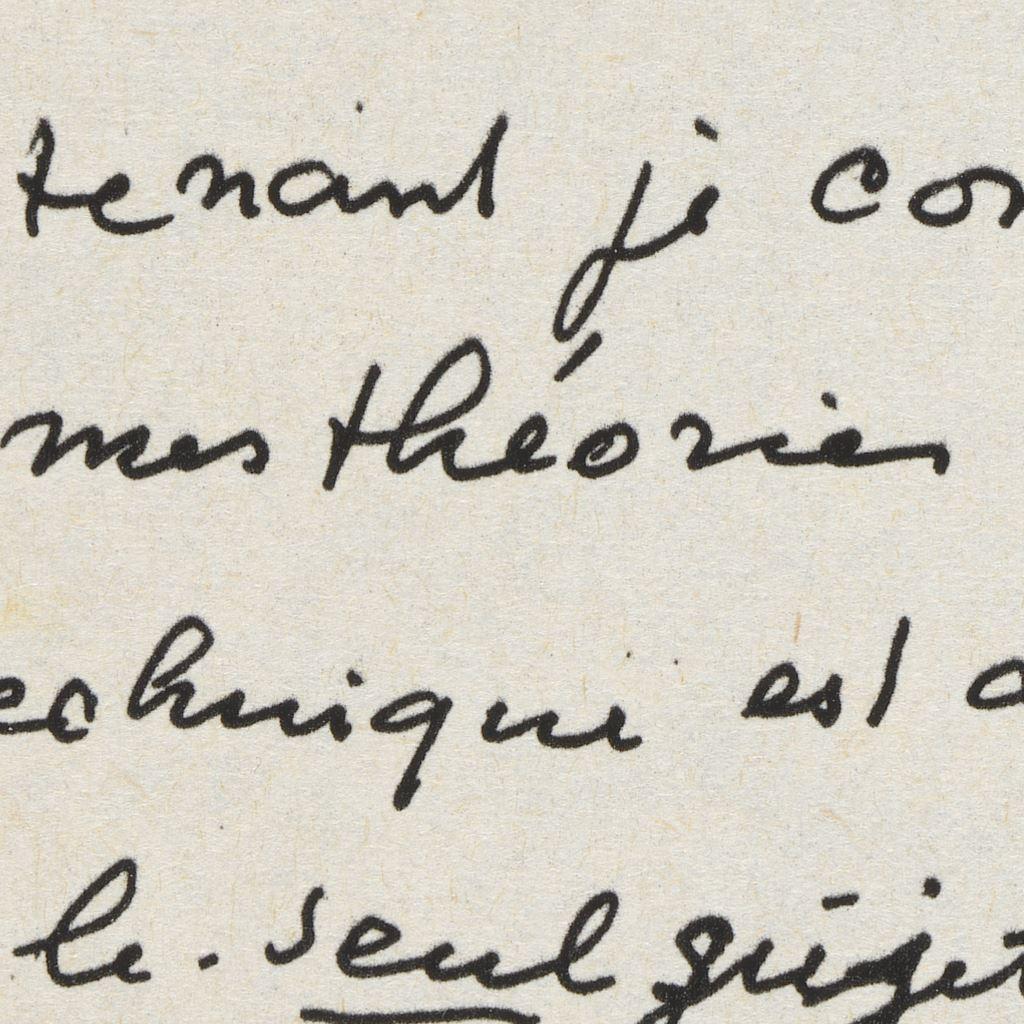 tenant je con
mes théories
echnique est
le. seul